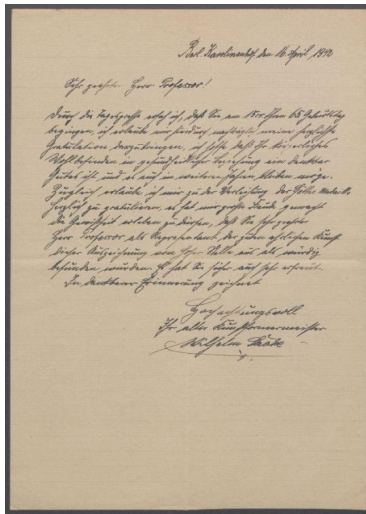 Bln. Karolinenhof, den 16. April, 1942
Sehr geehrter Herr Professor!
Durch die Tagespresse erfuhr ich, daß Sie am 15ten Ihren 65. Geburtstag
begingen, ich erlaube mir hierdurch nachträglich meine herzlichste
Gratulation darzubringen, ich hoffe daß Ihr körperliches
Wohlbefinden in gesundheitlicher Beziehung ein denkbar
Gutes ist und es auch in weiteren Jahren bleiben möge.
Zugleich erlaube ich mir zu der Verleihung der Goethe-Medaille
herzlich zu gratulieren, es hat mir große Freude gemacht
die Gewißheit erleben zu dürfen, daß Sie sehr geehrter
Herr Professor als Representant der guten ehrlichen Kunst
dieser Auszeichnung von hoher Stelle aus als würdig
befunden wurden. Es hat Sie sicher auch sehr erfreut.
In dankbarer Erinnerung zeichnet
Hochachtungsvoll
Ihr alter Kunstformermeister
Wilhelm